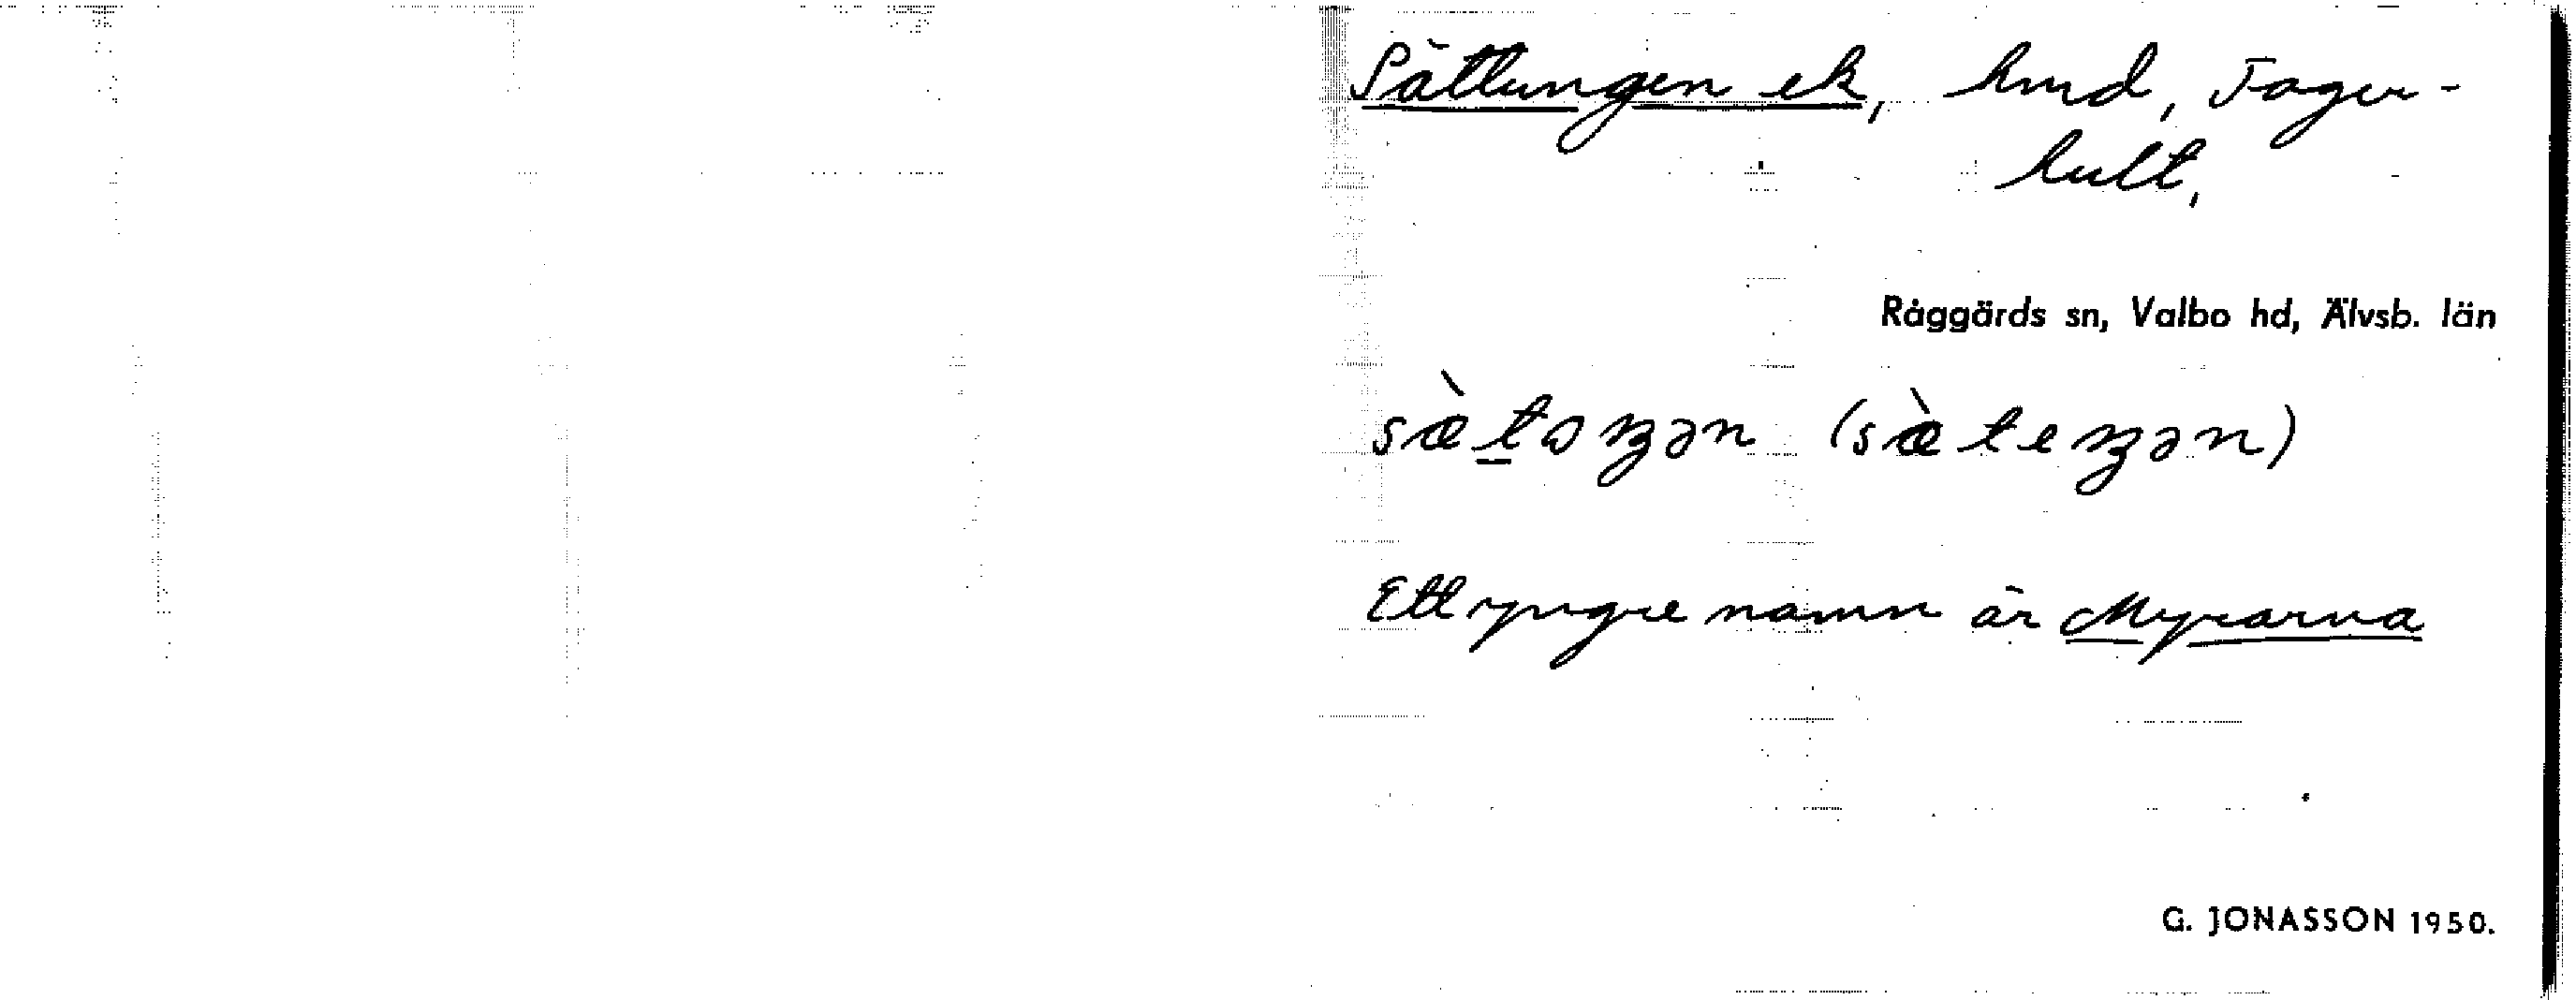 Sättungen ek, hmd, Fager-
hult,
Råggärds sn, Valbo hd, Älvsb. län
sæ̀tɷŋən (sæ̀teŋən)
Ett yngre namn är Myrarna
G. JONASSON 1950.